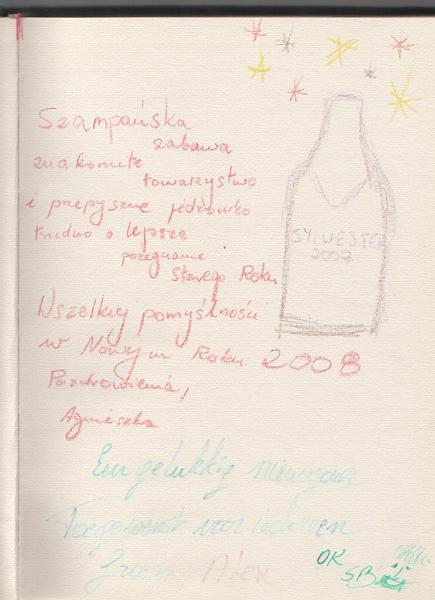 Szampańska
zabawa
znakomite
towarzystwo
i przepyszne jedzonko
trudno o lepsze
pożegnanie
Starego Roku
Wszelkiej pomyślności
w Nowym Roku 2008
Pozdrowienia,
Agnieszka
SYLWESTER
2007
Een gelukkig nieuwjaar
Toegewenst voor iedereen
Groetjes, Alex
OK
SB